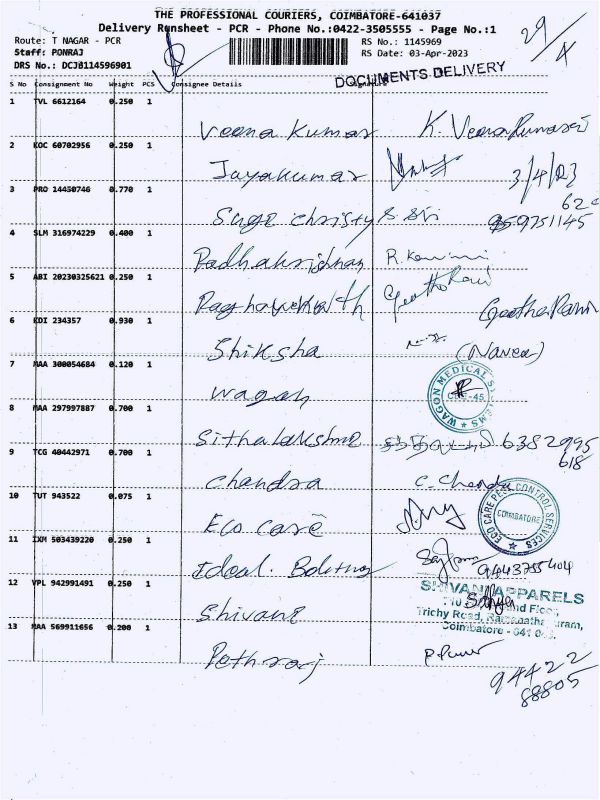 THE PROFESSIONAL COURIERS, COIMBATORE-641037
Delivery Runsheet - PCR - Phone No.:0422-3505555 - Page No.:1
Route: T NAGAR - PCR
RS No.: 1145969
29/4
Staff: PONRAJ
RS Date: 03-Apr-2023
DRS No.: DCJB114596901
DOCUMENTS DELIVERY
S No Consignment No Weight PCS Consignee Details
1 TVL 6612164 0.250 1
Veena Kumar K. Veena Kumari
2 KOC 60702956 0.250 1
Jayakumar 3/4/23
3 PRO 14450746 0.770 1
Suge Christy
9751145
4 SLM 316974229 0.400 1
Radhakrishnan
5 ABI 20230325621 0.250 1
Geetha Rani
6 KDI 234357 0.930 1
Shiksha (Naveen)
7 MAA 300054684 0.120 1
Wagan
WAGON MEDICAL
8 MAA 297997887 0.700 1
Sithalakshmi 6382995
618
9 TCG 40442971 0.700 1
Chandra C. Chandra
10 TUT 943522 0.075 1
Eco care
ECO CARE PEST CONTROL SERVICES
COIMBATORE
11 IXM 503439220 0.250 1
Ideal
12 VPL 942991491 0.250 1
Shivani
SHIVANI APPARELS
Trichy Road,
Coimbatore - 641
13 MAA 569911656 0.200 1
Pethraj
94422
88805